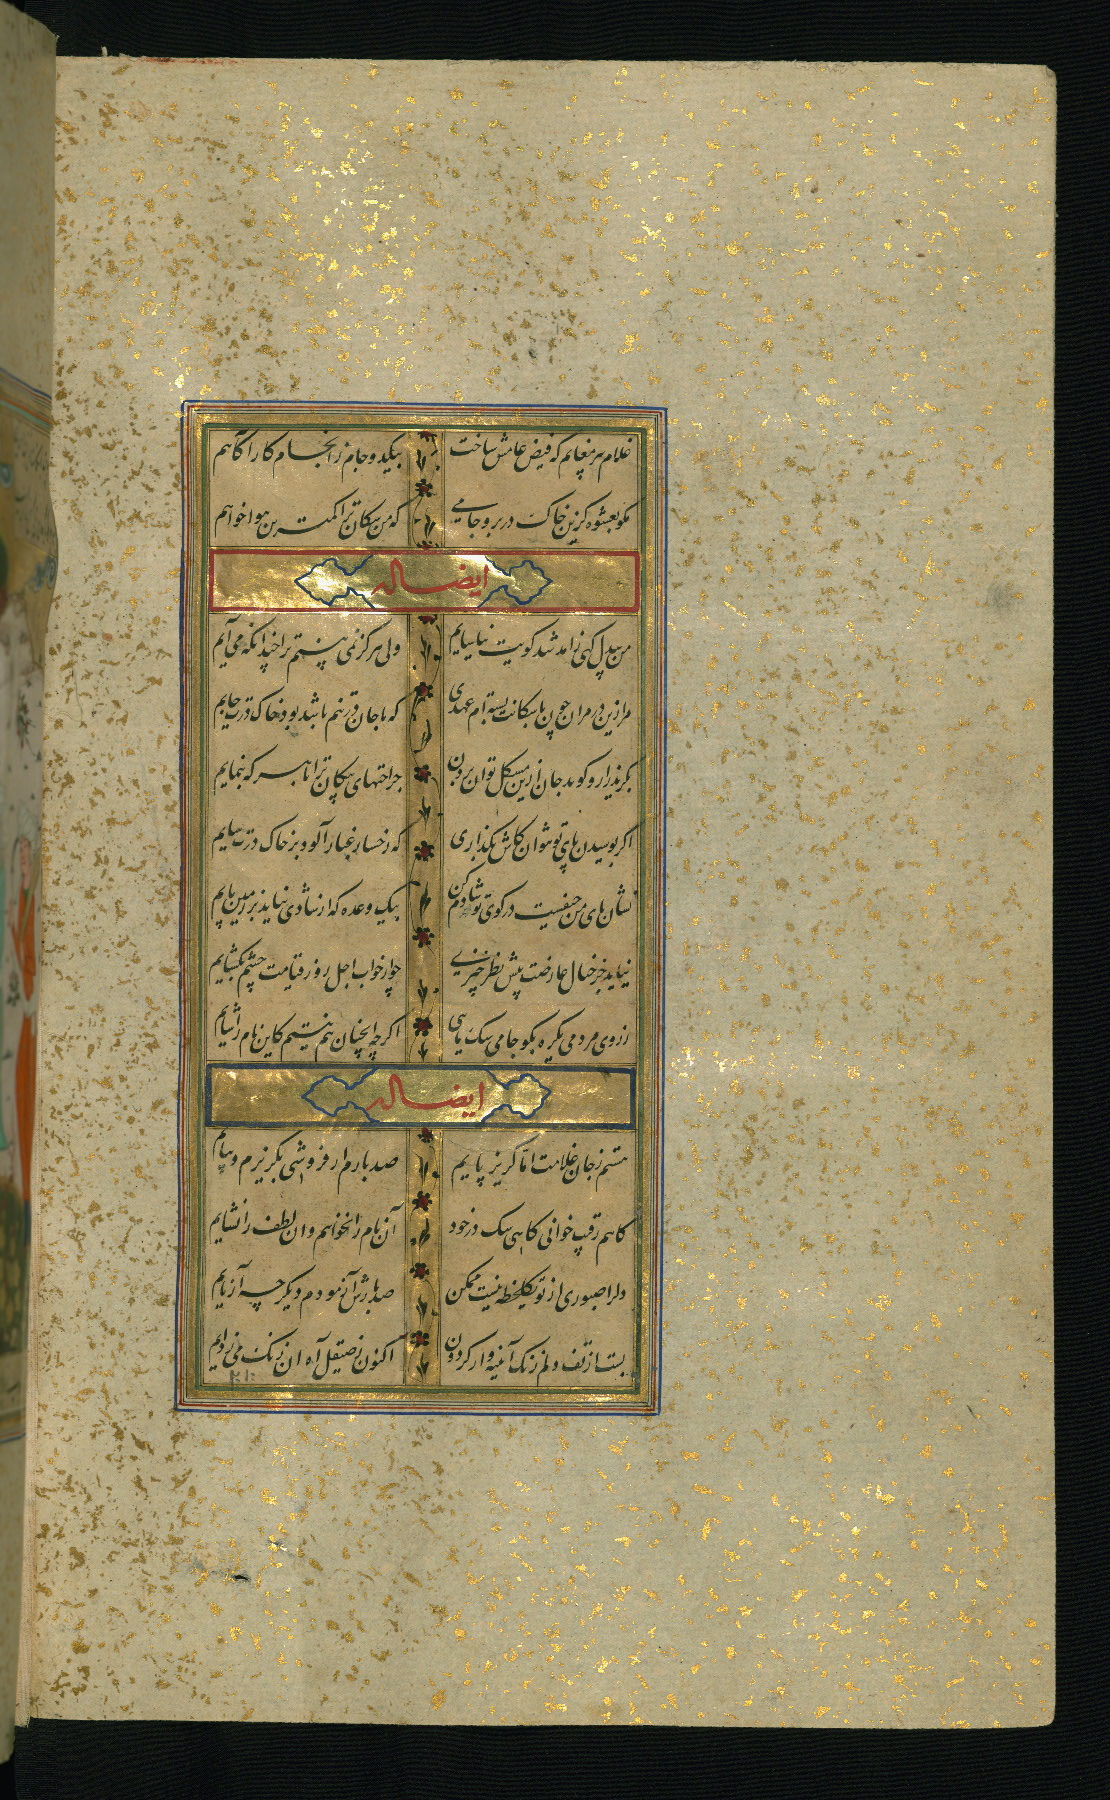 غلام پیر مغانم که فیض عامش ساخت بیکدو جام ز انجام کار آگاهم
مکو بعشوه کزین خاک در برو جامی که من سکان ترا کمترین هواخواهم
ایضا له
من بیدل کهی زآمد شد کویت نیاسایم ولی هرگز نمی بینم ترا چندانکه می آیم
مرا زین در مران چون با سکانت بسته ام عهدی که تا جان در تنم باشد بود خاک درت جایم
جراحتهای پیکان ترا تا هر که بنمایم
اگر بوسیدن پای تو نتوان کاش بگذاری که رخسار غبارآلود بر خاک درت سایم
نشان پای من حیفست در کوی تو شادم کن بیک وعده که از شادی نیاید بر زمین پایم
نیاید جز خیال عارضت پیش نظر چیزی چو از خواب اجل روز قیامت چشم بگشایم
ز روی مردمی یکره بگو جامی سک مایی اگر چه آنچنان هم نیستم کاین نام را شایم
ایضا له
هستم ز جان غلامت اما گریز پایم صد بارم ار فروشی بگریزم و بیایم
کاهم رقیب خوانی کاهی سک در خود آن نام را نخواهم وان لطف را نشایم
دلرا صبوری از تو یکلحظه نیست ممکن صد بارش آزمودم دیگر چه آزمایم
بست از تف دلم زنک آیینه وار گردون اکنون ز صیقل آه آن زنک می زدایم